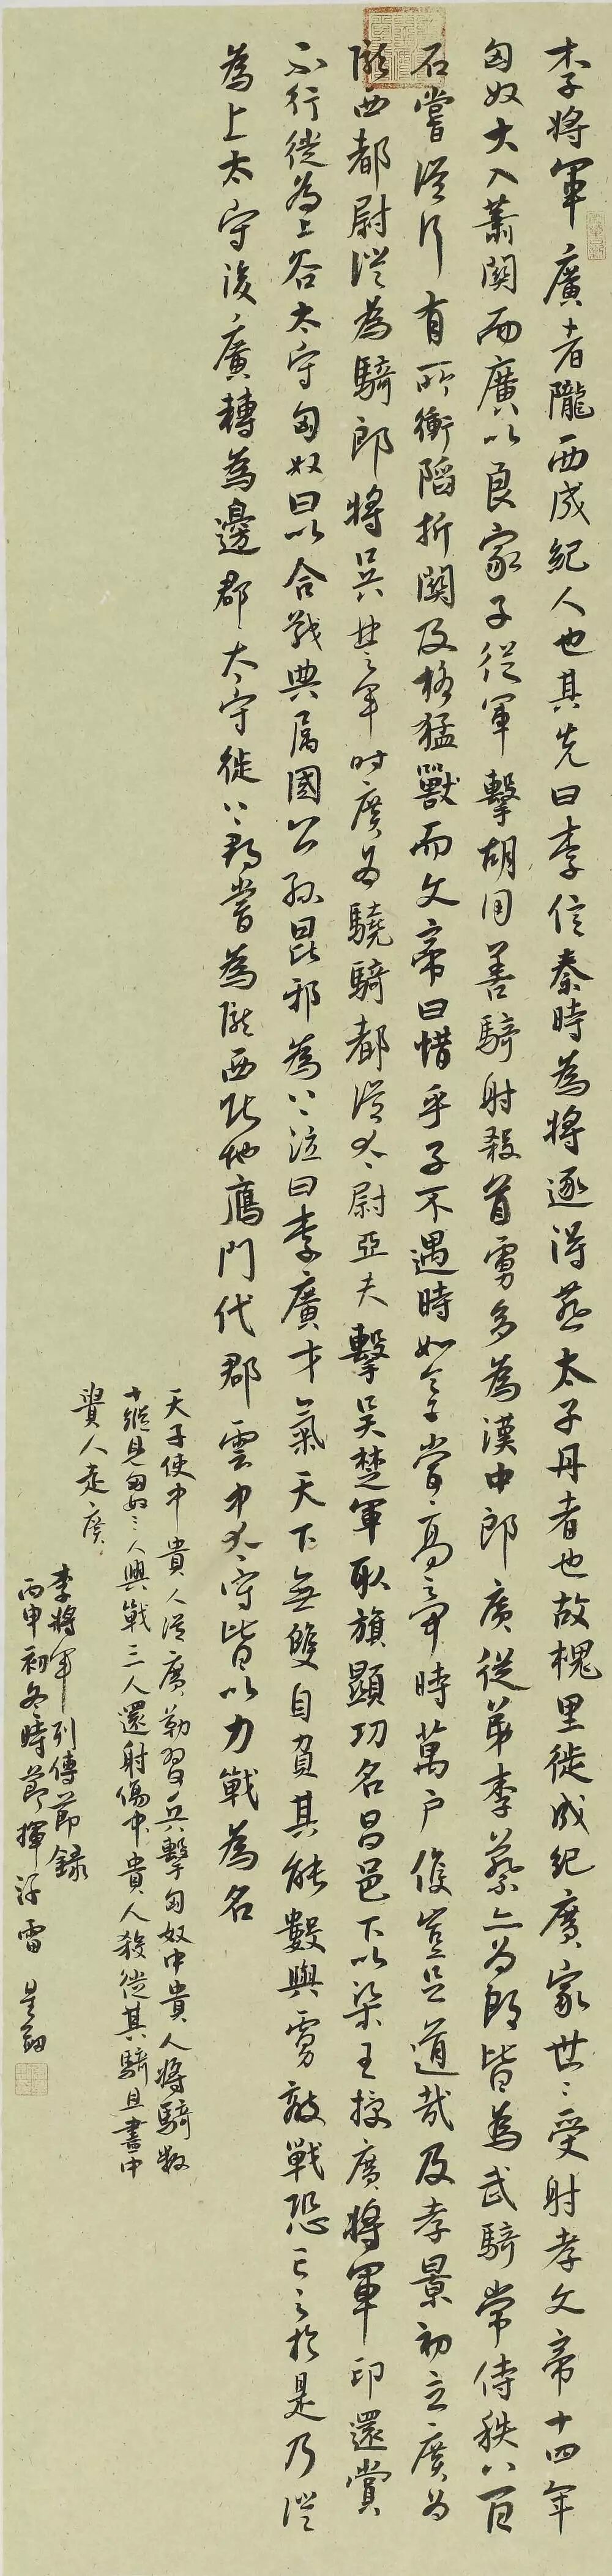 李將軍廣者隴西成紀人也其先曰李信秦時為將逐得燕太子丹者也故槐里徙成紀廣家世〻受射孝文帝十四年
匈奴大入蕭關而廣以良家子從軍擊胡用善騎射殺首虜多為漢中郎廣從弟李蔡亦為郎皆為武騎常侍秩八百
石嘗從行有所衝陷折關及格猛獸而文帝曰惜乎子不遇時如令子當高帝時萬戶侯豈足道哉及孝景初立廣為
隴西都尉從為騎郎將吳楚軍時廣為驍騎都從太尉亞夫擊吳楚軍取旗顯功名昌邑下以梁王授廣將軍印還賞
不行徙為上谷太守匈奴日以合戰典属國公孫昆邪為上泣曰李廣才氣天下無雙自負其能數與虜敵戰恐亡之於是乃從
為上太守後廣轉為邊郡太守徙上郡嘗為隴西北地鴈門代郡雲中太守皆以力戰為名
天子使中貴人從廣勒習兵擊匈奴中貴人將騎數
十縱見匈奴三人與戰三人還射傷中貴人殺從其騎且盡中
貴人走廣
李將軍列傳節錄
丙申初冬時節揮汗雷